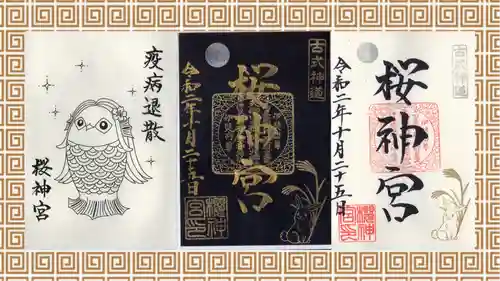 疫病退散
桜神宮
古式神道
桜神宮
令和二年十月二十五日
古式神道
桜神宮
令和二年十月二十五日